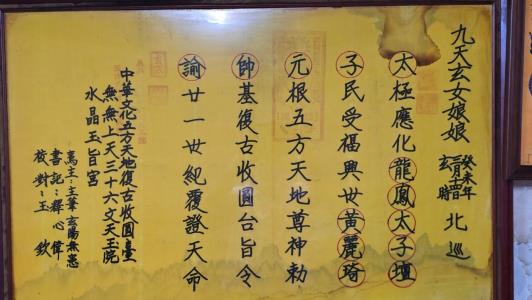 九天玄女娘娘
癸未年
玄時
北巡
太極應化龍鳳太子壇
子民受福興世黃麗琦
元根五方天地尊神勅
帥基復古收圓台旨令
諭廿一世紀覆證天命
中華文化五方天地復古收圓臺
無無上天三十六文天王院
水晶玉旨宮
萬主：主華 玄陽無悳
書記：釋心偉
校對：玉欽